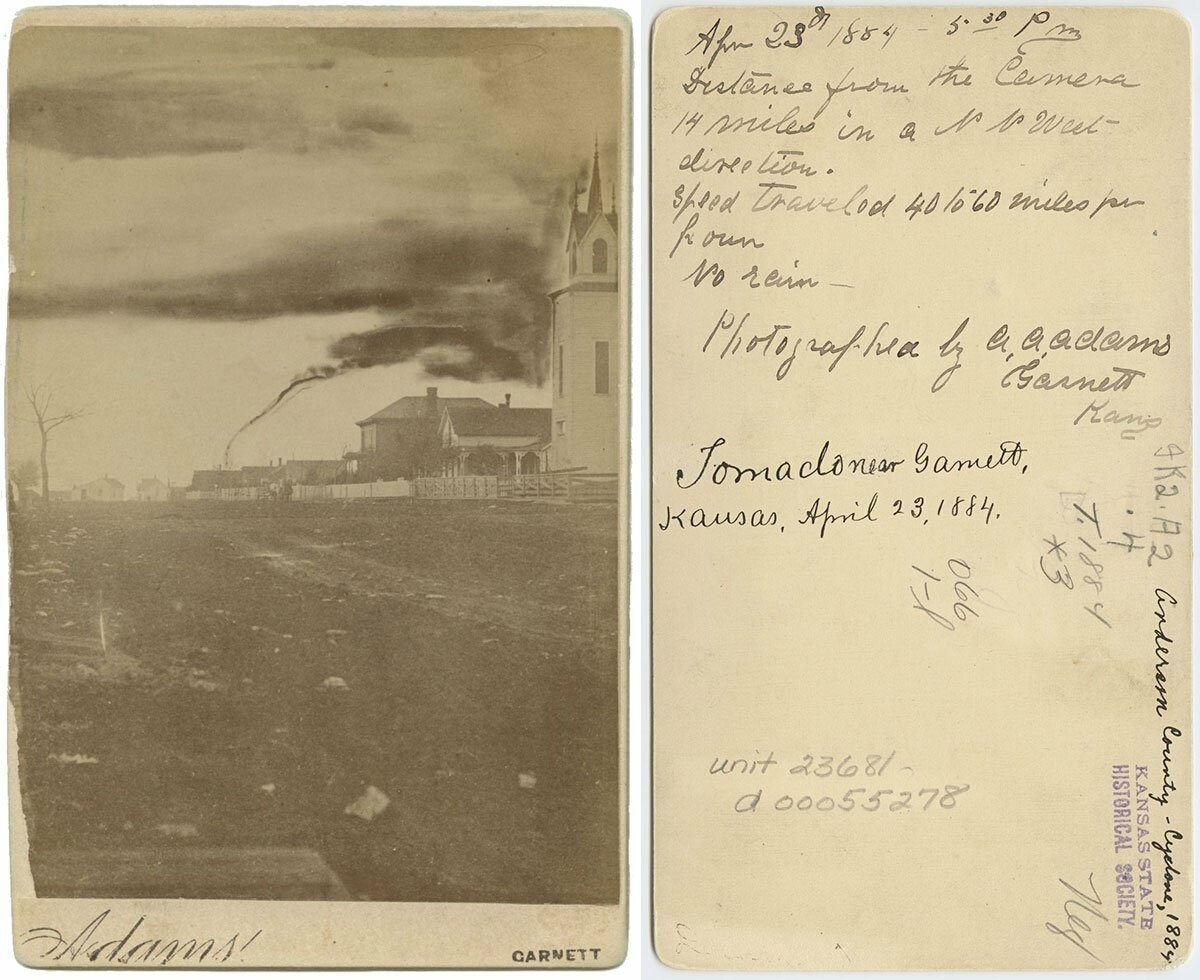 Adams'
GARNETT
Apr 23d 1884 - 5 30 Pm
Distance from the Camera
14 miles in a N N West
direction.
Speed traveled 40 to 60 miles per
hour
No rain -
Photographed by A. A. Adams
Garnett
Kans
Tornado near Garnett,
Kansas, April 23, 1884.
FK2.A2
.4
T.1884
*3
066
unit 23681-
a 00055278
Anderson County - Cyclone, 1884
KANSAS STATE
HISTORICAL SOCIETY.
Neg